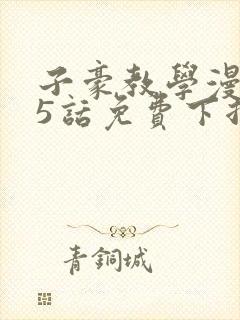 子豪教學漫
5話免費下
青銅城